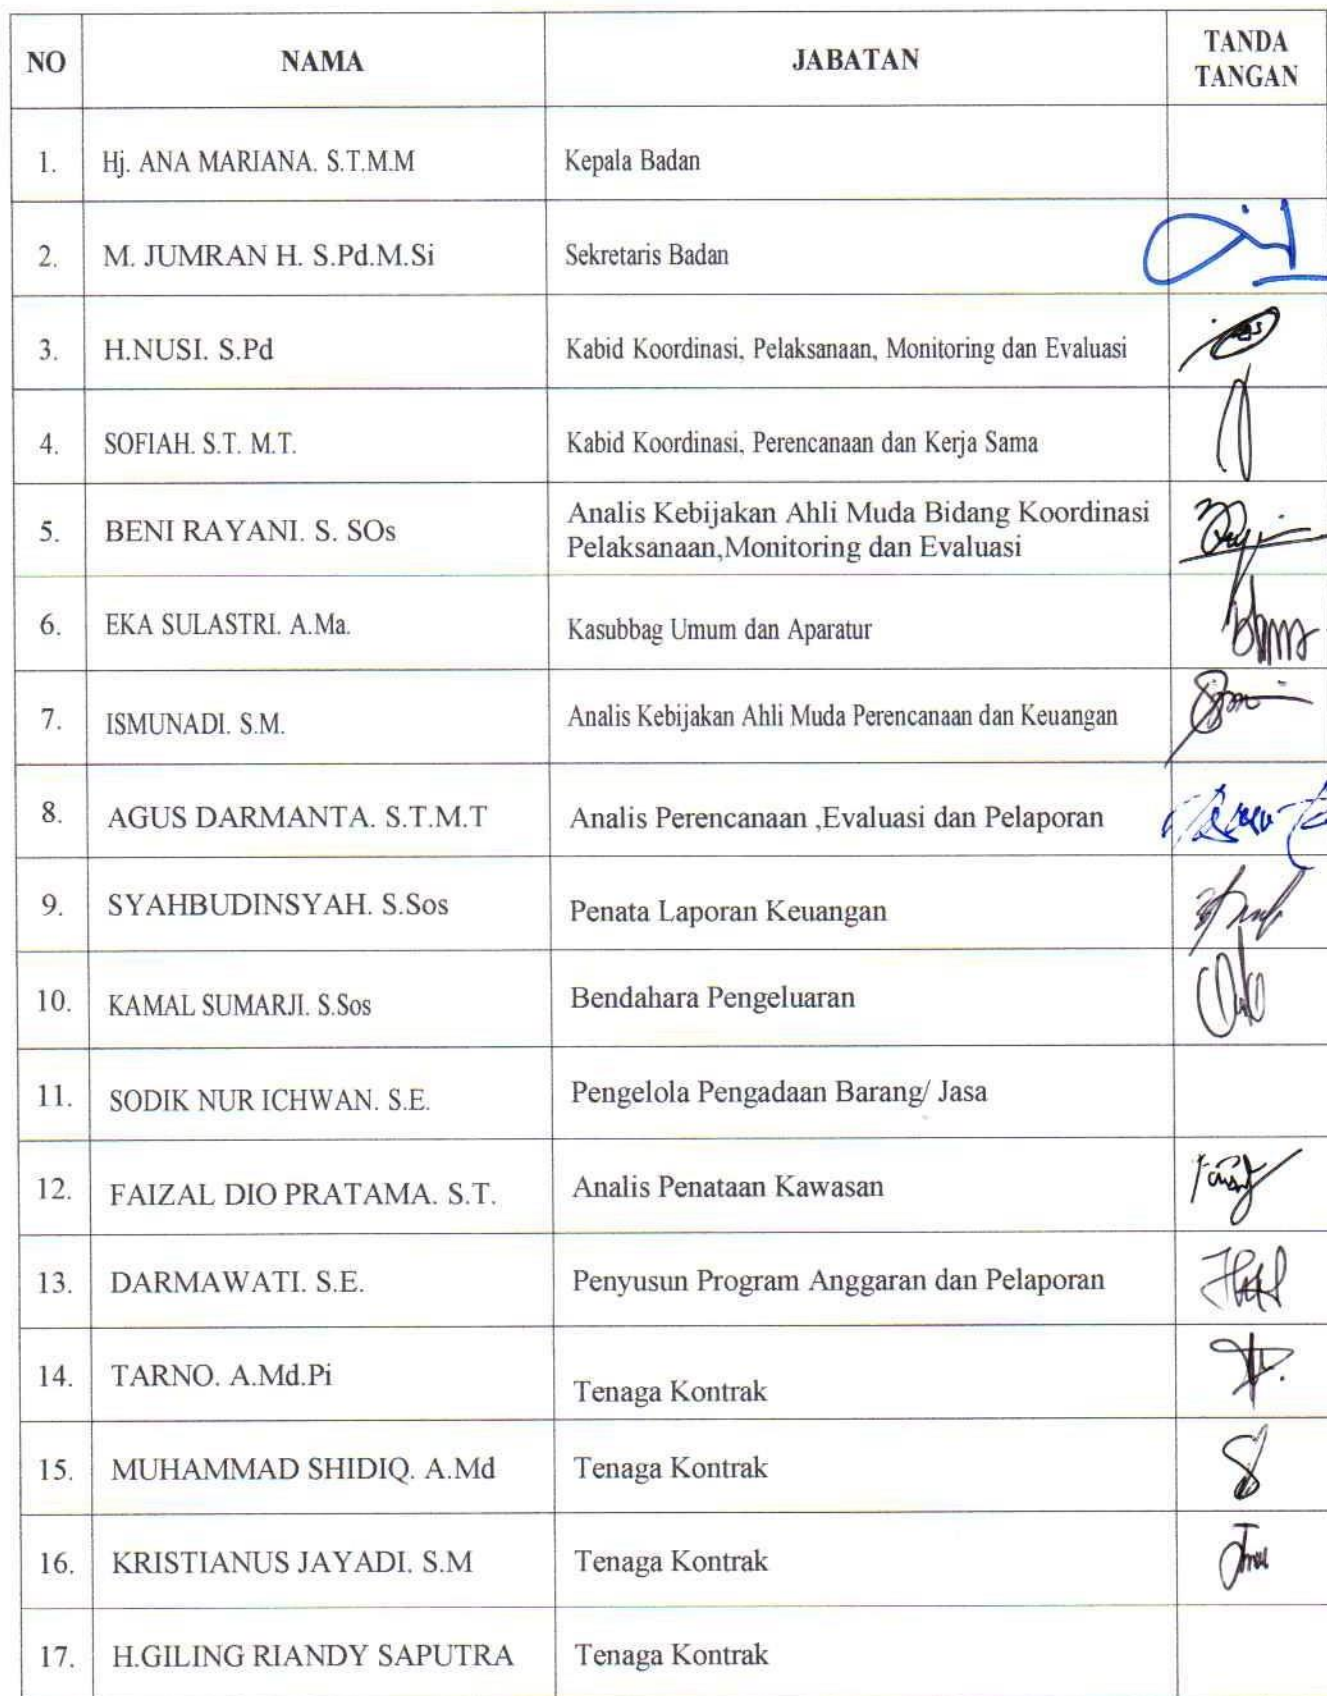 NO NAMA JABATAN TANDA
TANGAN
1. Hj. ANA MARIANA. S.T.M.M Kepala Badan
2. M. JUMRAN H. S.Pd.M.Si Sekretaris Badan
3. H.NUSI. S.Pd Kabid Koordinasi, Pelaksanaan, Monitoring dan Evaluasi
4. SOFIAH. S.T. M.T. Kabid Koordinasi, Perencanaan dan Kerja Sama
5. BENI RAYANI. S. SOs Analis Kebijakan Ahli Muda Bidang Koordinasi
Pelaksanaan,Monitoring dan Evaluasi
6. EKA SULASTRI. A.Ma. Kasubbag Umum dan Aparatur
7. ISMUNADI. S.M. Analis Kebijakan Ahli Muda Perencanaan dan Keuangan
8. AGUS DARMANTA. S.T.M.T Analis Perencanaan ,Evaluasi dan Pelaporan
9. SYAHBUDINSYAH. S.Sos Penata Laporan Keuangan
10. KAMAL SUMARJI. S.Sos Bendahara Pengeluaran
11. SODIK NUR ICHWAN. S.E. Pengelola Pengadaan Barang/ Jasa
12. FAIZAL DIO PRATAMA. S.T. Analis Penataan Kawasan
13. DARMAWATI. S.E. Penyusun Program Anggaran dan Pelaporan
14. TARNO. A.Md.Pi Tenaga Kontrak
15. MUHAMMAD SHIDIQ. A.Md Tenaga Kontrak
16. KRISTIANUS JAYADI. S.M Tenaga Kontrak
17. H.GILING RIANDY SAPUTRA Tenaga Kontrak